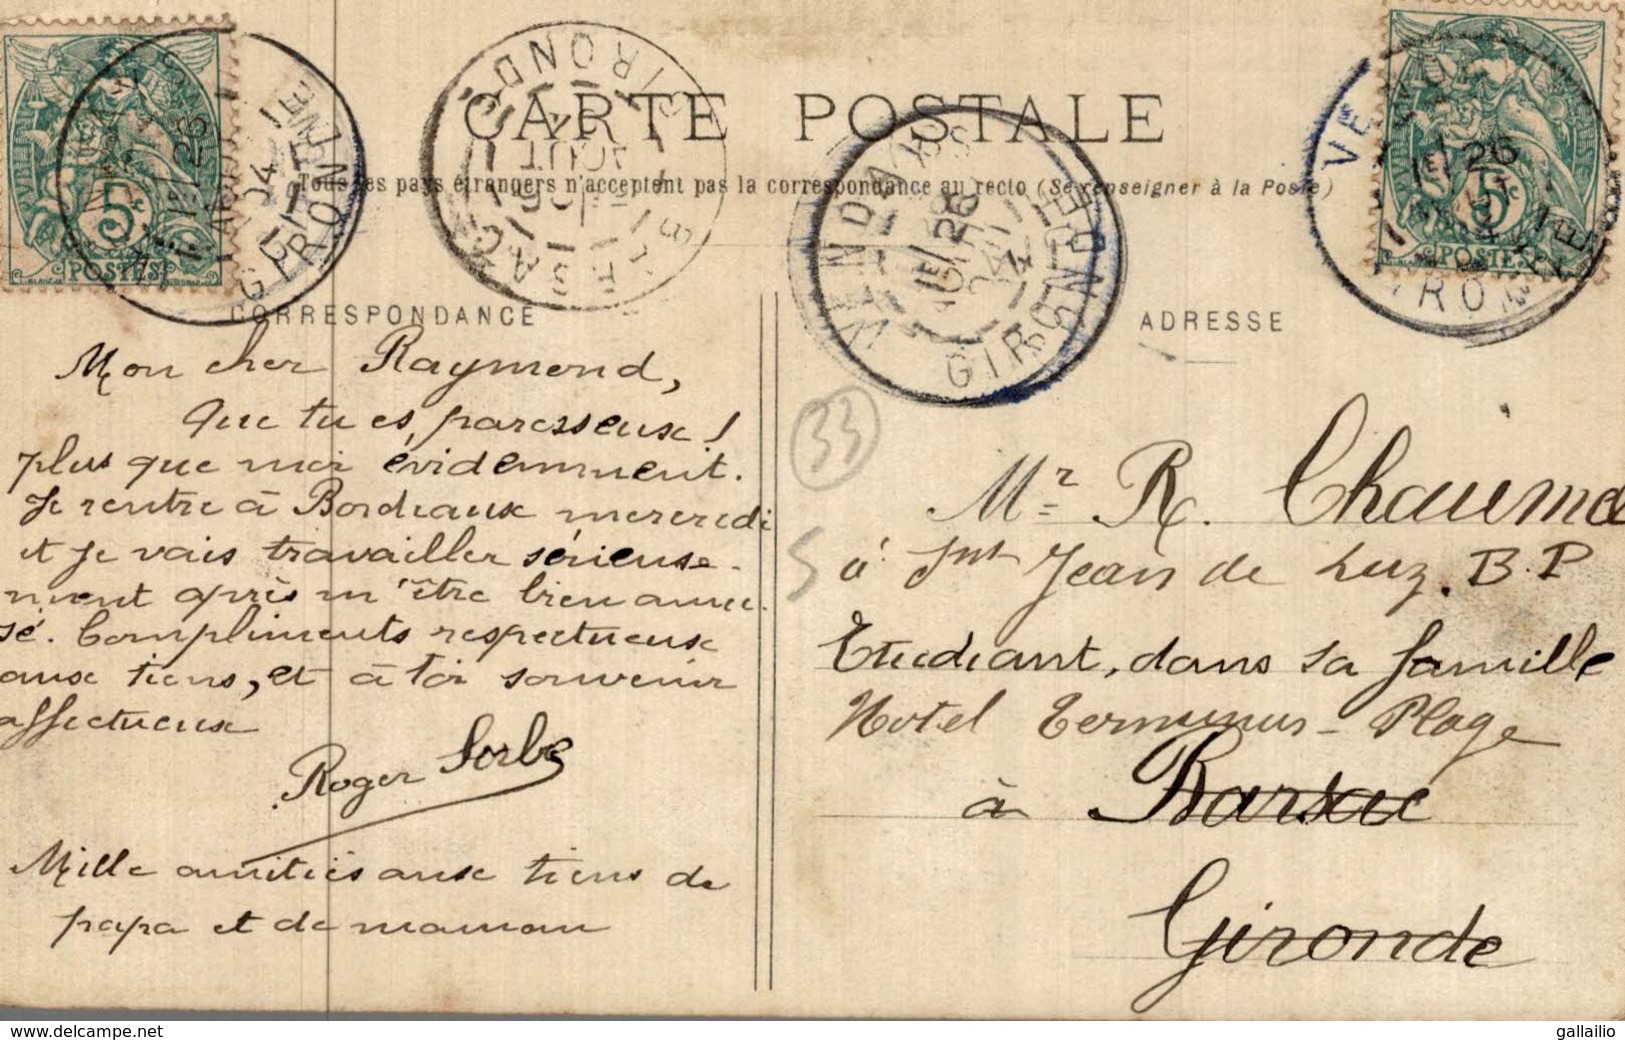 CARTE POSTALE
Tous les pays étrangers n'acceptent pas la correspondance au recto (Se renseigner à la Poste)
CORRESPONDANCE
Mon cher Raymond,
Que tu es paresseux !
plus que moi évidemment.
Je rentre à Bordeaux mercredi
et je vais travailler sérieuse-
ment après m'être bien amu-
sé. Compliments respectueux
aux tiens, et à toi souvenir
affectueux
Roger Sorbe
Mille amitiés aux tiens de
papa et de maman
ADRESSE
33
Mr R. Chaumel
à St Jean de Luz. B.P
Etudiant, dans sa famille
Hotel Terminus - Plage
à Barsac
Gironde
5c
POSTES
5c
POSTES
VENDAYS
GIRONDE
BARSAC
GIRONDE
www.delcampe.net
gallailio